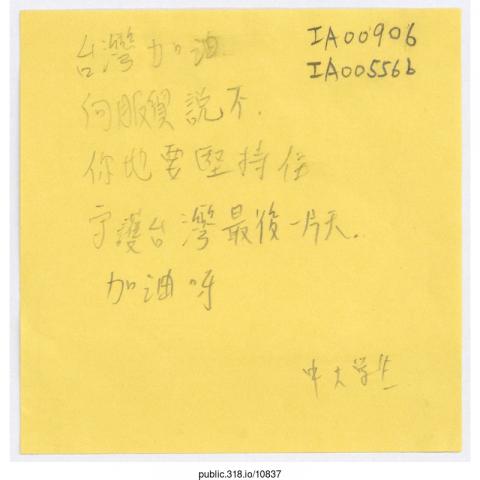 IA00906
IA00556b
台灣加油.
向服貿說不.
你地要堅持住
守護台灣最後一片天.
加油呀
中大学生
public.318.io/10837